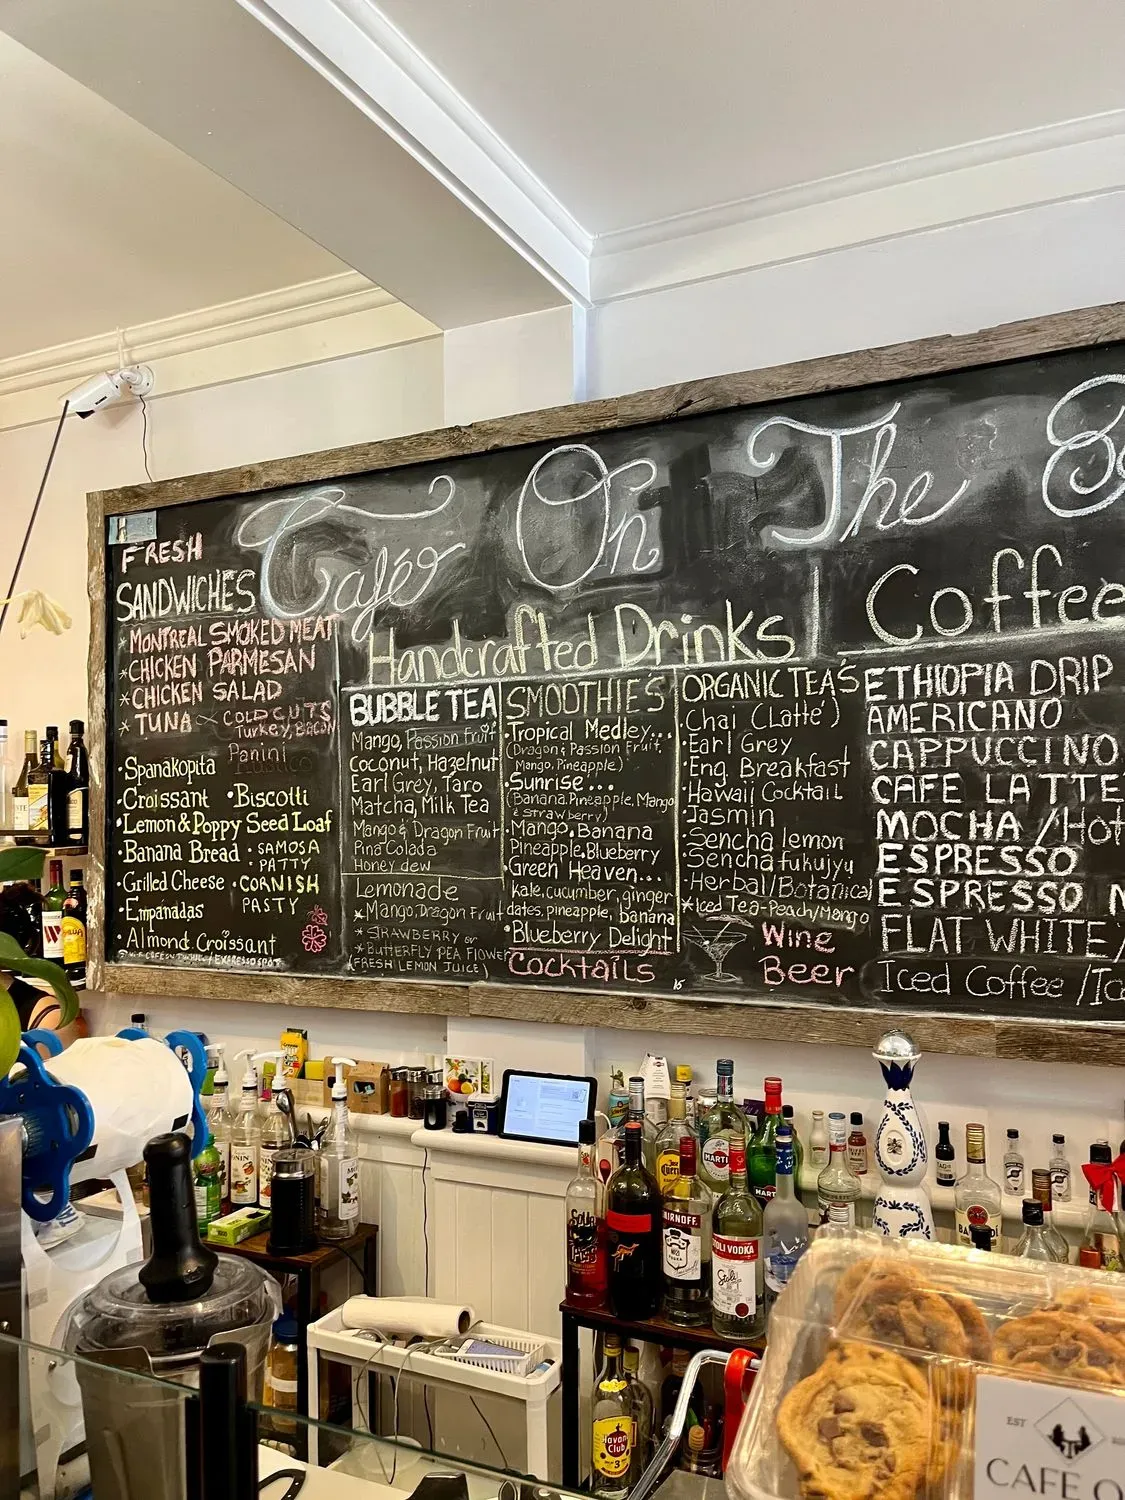 Cafés On The
FRESH
SANDWICHES
*MONTREAL SMOKED MEAT
*CHICKEN PARMESAN
*CHICKEN SALAD
*TUNA
COLD CUTS
Turkey, Bacon
Panini
•Spanakopita
•Croissant •Biscotti
•Lemon & Poppy Seed Loaf
•Banana Bread •SAMOSA
•PATTY
•Grilled Cheese •CORNISH
PASTY
•Empanadas
•Almond Croissant
Handcrafted Drinks
BUBBLE TEA
Mango, Passion Fruit
Coconut, Hazelnut
Earl Grey, Taro
Matcha, Milk Tea
Mango & Dragon Fruit
Pina Colada
Honey dew
Lemonade
*Mango, Dragon Fruit
*STRAWBERRY or
*BUTTERFLY PEA FLOWER
(FRESH LEMON JUICE)
SMOOTHIES
•Tropical Medley...
(Dragon & Passion Fruit,
Mango, Pineapple)
•Sunrise...
(Banana, Pineapple, Mango
& Strawberry)
•Mango, Banana
Pineapple, Blueberry
•Green Heaven...
kale, cucumber, ginger
dates, pineapple, banana
•Blueberry Delight
Cocktails
ORGANIC TEA'S
•Chai (Latte')
•Earl Grey
•Eng. Breakfast
•Hawaii Cocktail
•Jasmin
•Sencha lemon
•Sencha fukujyu
•Herbal/Botanical
*Iced Tea-Peach/Mango
Wine
Beer
Coffee
ETHIOPIA DRIP
AMERICANO
CAPPUCCINO
CAFE LATTE
MOCHA /Hot
ESPRESSO
ESPRESSO
FLAT WHITE/
Iced Coffee /Ice
MARTI
SMIRNOFF
STOLI VODKA
Stoli
Havana
Club
3
EST
CAFE O